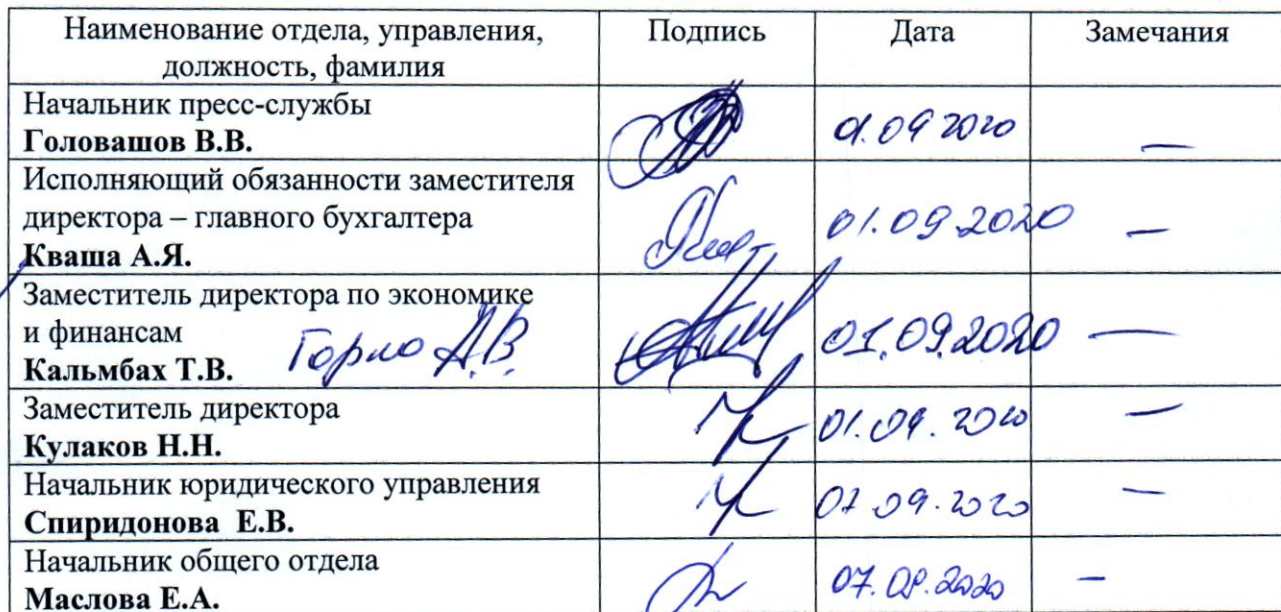 Наименование отдела, управления, Подпись Дата Замечания
должность, фамилия
Начальник пресс-службы
Головашов В.В. 01.09 2020 —
Исполняющий обязанности заместителя
директора – главного бухгалтера 01.09.2020 —
Кваша А.Я.
Заместитель директора по экономике
и финансам Горло А.В. 01.09.2020 —
Кальмбах Т.В.
Заместитель директора
Кулаков Н.Н. 01.09.2020 —
Начальник юридического управления
Спиридонова Е.В. 07.09.2020 —
Начальник общего отдела
Маслова Е.А. 07.09.2020 —